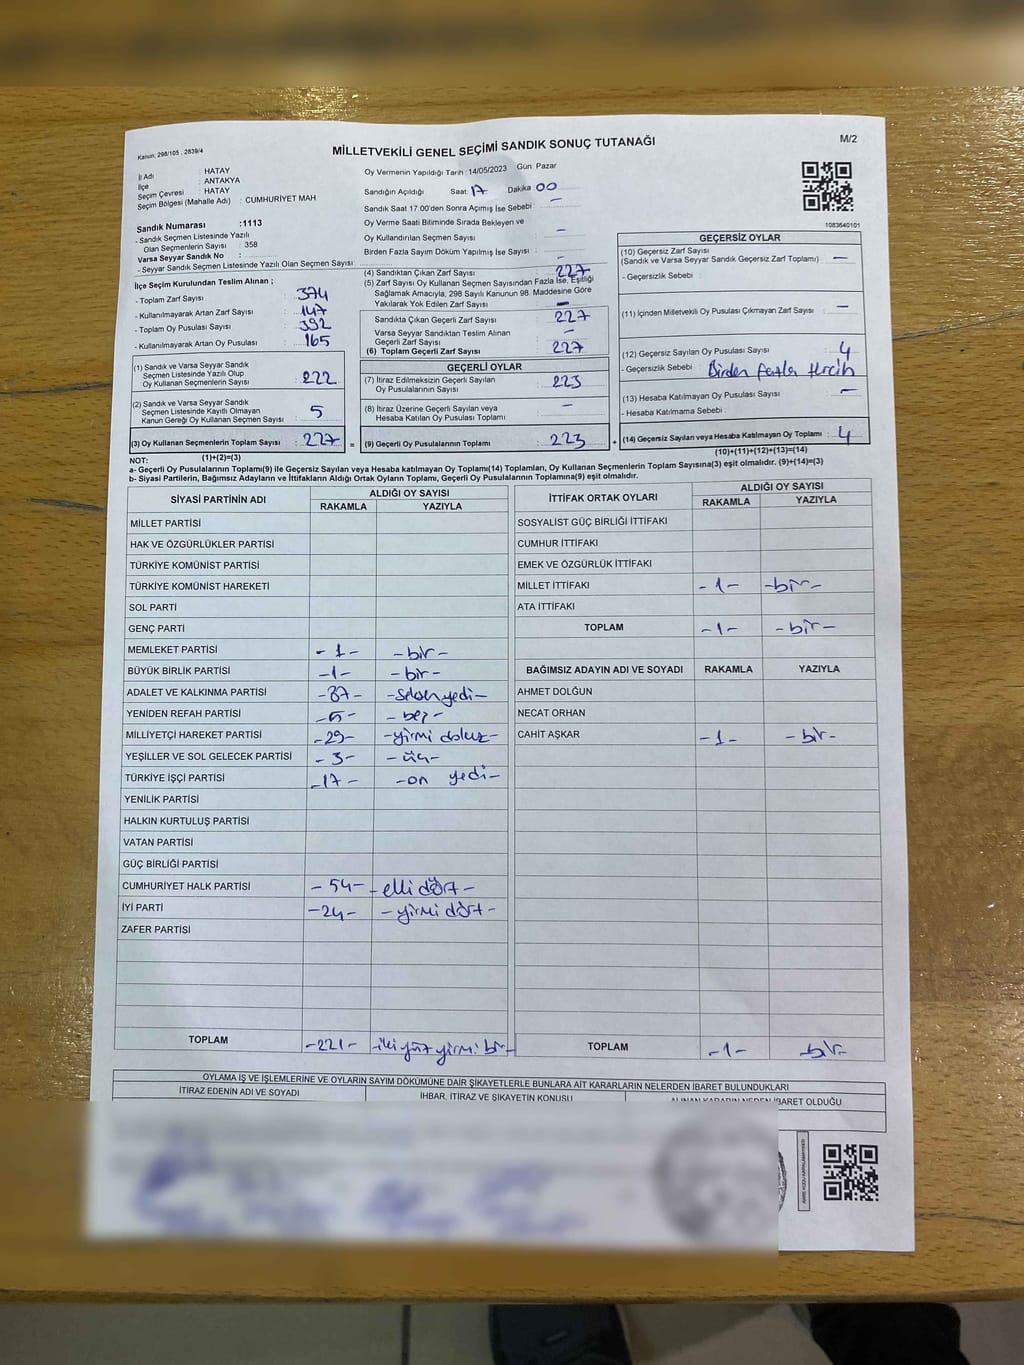 Kanun: 298/105 , 2839/4
MİLLETVEKİLİ GENEL SEÇİMİ SANDIK SONUÇ TUTANAĞI
M/2
İl Adı : HATAY
İlçe : ANTAKYA
Seçim Çevresi : HATAY
Seçim Bölgesi (Mahalle Adı) : CUMHURİYET MAH
Sandık Numarası :1113
- Sandık Seçmen Listesinde Yazılı
Olan Seçmenlerin Sayısı : 358
Varsa Seyyar Sandık No :
- Seyyar Sandık Seçmen Listesinde Yazılı Olan Seçmen Sayısı :
İlçe Seçim Kurulundan Teslim Alınan ;
- Toplam Zarf Sayısı : 374
- Kullanılmayarak Artan Zarf Sayısı : 147
- Toplam Oy Pusulası Sayısı : 392
- Kullanılmayarak Artan Oy Pusulası : 165
(1) Sandık ve Varsa Seyyar Sandık
Seçmen Listesinde Yazılı Olup
Oy Kullanan Seçmenlerin Sayısı : 222
(2) Sandık ve Varsa Seyyar Sandık
Seçmen Listesinde Kayıtlı Olmayan
Kanun Gereği Oy Kullanan Seçmen Sayısı : 5
(3) Oy Kullanan Seçmenlerin Toplam Sayısı : 227
(1)+(2)=(3)
Oy Vermenin Yapıldığı Tarih : 14/05/2023 Gün: Pazar
Sandığın Açıldığı Saat: 17 Dakika: 00
Sandık Saat 17:00'den Sonra Açımış İse Sebebi :
Oy Verme Saati Bitiminde Sırada Bekleyen ve
Oy Kullandırılan Seçmen Sayısı : –
Birden Fazla Sayım Döküm Yapılmış İse Sayısı : –
(4) Sandıktan Çıkan Zarf Sayısı : 227
(5) Zarf Sayısı Oy Kullanan Seçmen Sayısından Fazla İse, Eşitliği
Sağlamak Amacıyla, 298 Sayılı Kanunun 98. Maddesine Göre
Yakılarak Yok Edilen Zarf Sayısı : –
Sandıkta Çıkan Geçerli Zarf Sayısı : 227
Varsa Seyyar Sandıktan Teslim Alınan
Geçerli Zarf Sayısı : –
(6) Toplam Geçerli Zarf Sayısı : 227
GEÇERLİ OYLAR
(7) İtiraz Edilmeksizin Geçerli Sayılan
Oy Pusulalarının Sayısı : 223
(8) İtiraz Üzerine Geçerli Sayılan veya
Hesaba Katılan Oy Pusulası Toplamı : –
= (9) Geçerli Oy Pusulalarının Toplamı : 223 +
1083640101
GEÇERSİZ OYLAR
(10) Geçersiz Zarf Sayısı
(Sandık ve Varsa Seyyar Sandık Geçersiz Zarf Toplamı) : –
- Geçersizlik Sebebi :
(11) İçinden Milletvekili Oy Pusulası Çıkmayan Zarf Sayısı : –
(12) Geçersiz Sayılan Oy Pusulası Sayısı : 4
- Geçersizlik Sebebi : Birden fazla tercih
(13) Hesaba Katılmayan Oy Pusulası Sayısı : –
- Hesaba Katılmama Sebebi :
(14) Geçersiz Sayılan veya Hesaba Katılmayan Oy Toplamı : 4
(10)+(11)+(12)+(13)=(14)
NOT:
a- Geçerli Oy Pusulalarının Toplamı(9) ile Geçersiz Sayılan veya Hesaba katılmayan Oy Toplamı(14) Toplamları, Oy Kullanan Seçmenlerin Toplam Sayısına(3) eşit olmalıdır. (9)+(14)=(3)
b- Siyasi Partilerin, Bağımsız Adayların ve İttifakların Aldığı Ortak Oyların Toplamı, Geçerli Oy Pusulalarının Toplamına(9) eşit olmalıdır.
SİYASİ PARTİNİN ADI ALDIĞI OY SAYISI
RAKAMLA YAZIYLA
MİLLET PARTİSİ
HAK VE ÖZGÜRLÜKLER PARTİSİ
TÜRKİYE KOMÜNİST PARTİSİ
TÜRKİYE KOMÜNİST HAREKETİ
SOL PARTİ
GENÇ PARTİ
MEMLEKET PARTİSİ -1- -bir-
BÜYÜK BİRLİK PARTİSİ -1- -bir-
ADALET VE KALKINMA PARTİSİ -87- -seksen yedi-
YENİDEN REFAH PARTİSİ -5- -beş-
MİLLİYETÇİ HAREKET PARTİSİ -29- -yirmi dokuz-
YEŞİLLER VE SOL GELECEK PARTİSİ -3- -üç-
TÜRKİYE İŞÇİ PARTİSİ -17- -on yedi-
YENİLİK PARTİSİ
HALKIN KURTULUŞ PARTİSİ
VATAN PARTİSİ
GÜÇ BİRLİĞİ PARTİSİ
CUMHURİYET HALK PARTİSİ -54- -elli dört-
İYİ PARTİ -24- -yirmi dört-
ZAFER PARTİSİ
TOPLAM -221- -iki yüz yirmi bir-
İTTİFAK ORTAK OYLARI ALDIĞI OY SAYISI
RAKAMLA YAZIYLA
SOSYALİST GÜÇ BİRLİĞİ İTTİFAKI
CUMHUR İTTİFAKI
EMEK VE ÖZGÜRLÜK İTTİFAKI
MİLLET İTTİFAKI -1- -bir-
ATA İTTİFAKI
TOPLAM -1- -bir-
BAĞIMSIZ ADAYIN ADI VE SOYADI RAKAMLA YAZIYLA
AHMET DOLĞUN
NECAT ORHAN
CAHİT AŞKAR -1- -bir-
TOPLAM -1- -bir-
OYLAMA İŞ VE İŞLEMLERİNE VE OYLARIN SAYIM DÖKÜMÜNE DAİR ŞİKAYETLERLE BUNLARA AİT KARARLARIN NELERDEN İBARET BULUNDUKLARI
İTİRAZ EDENİN ADI VE SOYADI İHBAR, İTİRAZ VE ŞİKAYETİN KONUSU ALINAN KARARIN NEDEN İBARET OLDUĞU